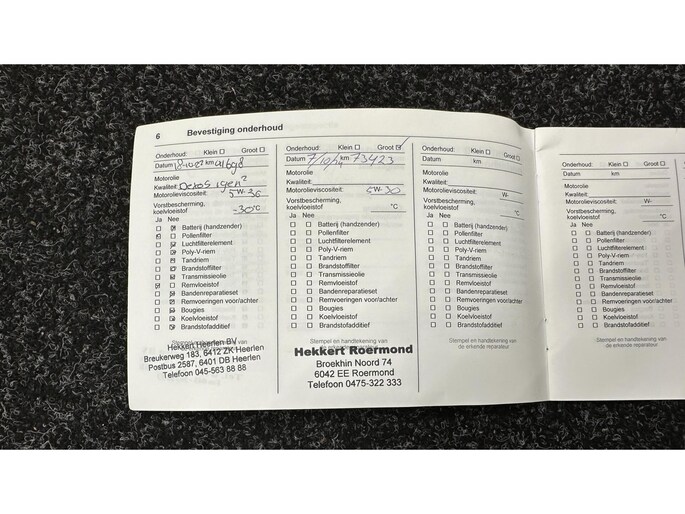 6 Bevestiging onderhoud
Onderhoud: Klein ☐ Groot ☐
Datum km
Motorolie
Kwaliteit:
Motorolieviscositeit: 5W-30
Vorstbescherming,
koelvloeistof -30°C
Ja Nee
Batterij (handzender)
Pollenfilter
Luchtfilterelement
Poly-V-riem
Tandriem
Brandstoffilter
Transmissieolie
Remvloeistof
Bandenreparatieset
Remvoeringen voor/achter
Bougies
Koelvloeistof
Brandstofadditief
Hekkert Heerlen BV
Breukerweg 183, 6412 ZK Heerlen
Postbus 2587, 6401 DB Heerlen
Telefoon 045-563 88 88
Onderhoud: Klein ☐ Groot ☑
Datum 7/10/ km 73423
Motorolie
Kwaliteit:
Motorolieviscositeit: 5W-30
Vorstbescherming,
koelvloeistof °C
Ja Nee
Batterij (handzender)
Pollenfilter
Luchtfilterelement
Poly-V-riem
Tandriem
Brandstoffilter
Transmissieolie
Remvloeistof
Bandenreparatieset
Remvoeringen voor/achter
Bougies
Koelvloeistof
Brandstofadditief
Stempel en handtekening van
de erkende reparateur
Hekkert Roermond
Broekhin Noord 74
6042 EE Roermond
Telefoon 0475-322 333
Onderhoud: Klein ☐ Groot ☐
Datum km
Motorolie
Kwaliteit:
Motorolieviscositeit: W-
Vorstbescherming,
koelvloeistof °C
Ja Nee
Batterij (handzender)
Pollenfilter
Luchtfilterelement
Poly-V-riem
Tandriem
Brandstoffilter
Transmissieolie
Remvloeistof
Bandenreparatieset
Remvoeringen voor/achter
Bougies
Koelvloeistof
Brandstofadditief
Stempel en handtekening van
de erkende reparateur
Onderhoud: Klein ☐ Groot ☐
Datum km
Motorolie
Kwaliteit:
Motorolieviscositeit: W-
Vorstbescherming,
koelvloeistof °C
Ja Nee
Batterij (handzender)
Pollenfilter
Luchtfilterelement
Poly-V-riem
Tandriem
Brandstoffilter
Transmissieolie
Remvloeistof
Bandenreparatieset
Remvoeringen voor/achter
Bougies
Koelvloeistof
Brandstofadditief
Stempel en handtekening van
de erkende reparateur